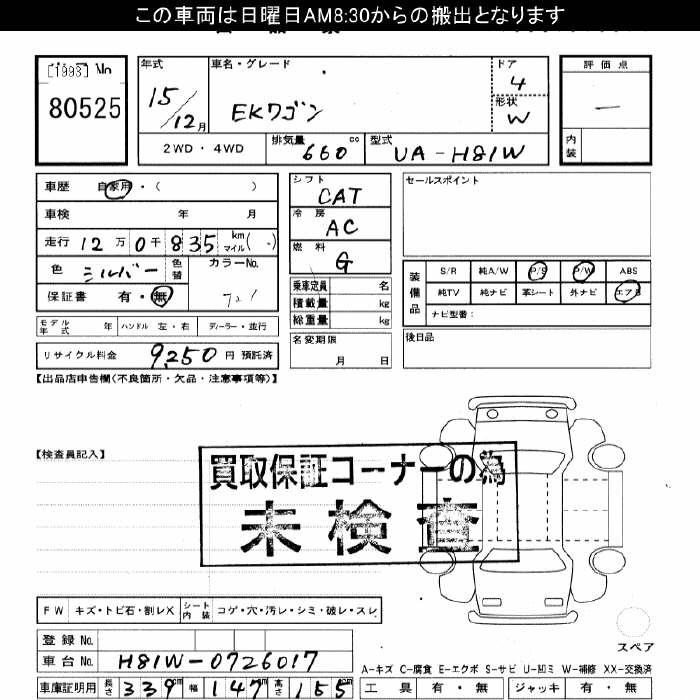 この車両は日曜日AM8:30からの搬出となります
[1993] No
80525
年式
15/12月
車名・グレード
EKワゴン
ドア
4
形状
W
評価点
—
内装
2WD・4WD
排気量 660 cc
型式 UA-H81W
車歴 自家用・( )
車検 年 月
走行 12万0千835 km マイル( )
色 シルバー 色替
カラーNo.
保証書 有・無
モデル年式 年 ハンドル 左・右 ディーラー・並行
リサイクル料金 9,250 円 預託済
シフト
CAT
冷房
AC
燃料
G
乗車定員 名
積載量 kg
総重量 kg
名変期限
月 日
セールスポイント
装備品
S/R 純A/W P/S P/W ABS
純TV 純ナビ 革シート 外ナビ エアB
ナビ型番:
後日品
【出品店申告欄(不良箇所・欠品・注意事項等)】
【検査員記入】
買取保証コーナーの為
未検査
FW キズ・トビ石・割レX シート内装 コゲ・穴・汚レ・シミ・破レ・スレ
登録No.
車台No. H81W-0726017
車庫証明用 長さ 339cm 幅 147cm 高さ 155cm
スペア
A-キズ C-腐食 E-エクボ S-サビ U-凹ミ W-補修 XX-交換済
工具 有・無 ジャッキ 有・無